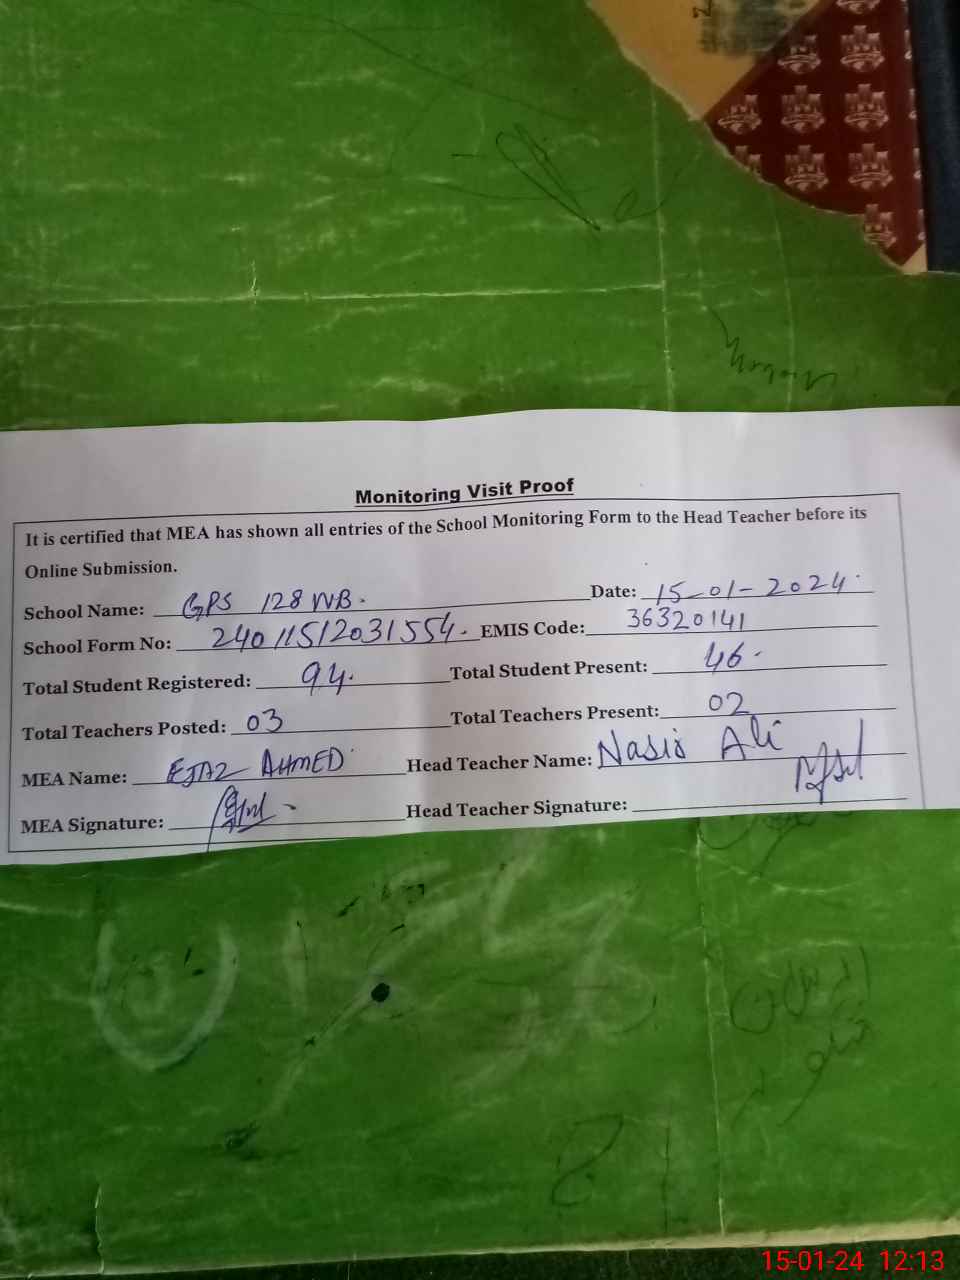 Monitoring Visit Proof
It is certified that MEA has shown all entries of the School Monitoring Form to the Head Teacher before its
Online Submission.
School Name: GPS 128 WB. Date: 15-01-2024.
School Form No: 24011512031554. EMIS Code: 36320141
Total Student Registered: 94. Total Student Present: 46.
Total Teachers Posted: 03 Total Teachers Present: 02
MEA Name: EJAZ AHMED Head Teacher Name: Nasir Ali
MEA Signature: Head Teacher Signature:
15-01-24 12:13